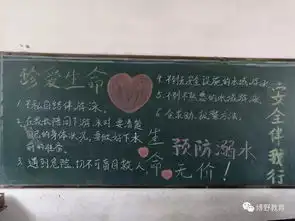 珍爱生命
1. 不私自结伴游泳。
2. 在家长陪同下游泳时要清楚
自己的身体状况,要做好下水
前的准备。
3. 遇到危险,切不可盲目救人
4. 不到无安全设施的水域游泳
5. 不到不熟悉的水域游泳
6. 会求助、报警方法。
生命
预防溺水
无价!
安全伴我行
博野教育